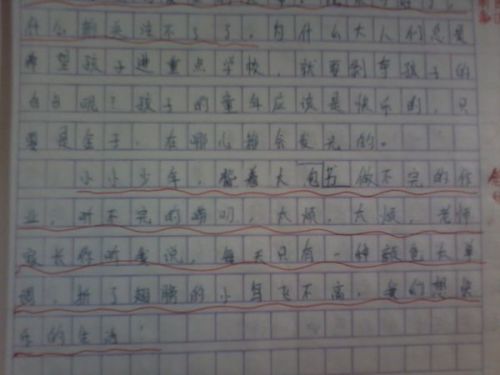 什么都关注不了了。为什么大人们总是
希望孩子进重点学校，就要剥夺孩子的
自由呢？孩子的童年应该是快乐的，只
要是金子，在哪儿都会发光的。
小小少年，背着大书包，做不完的作
业，听不完的唠叨，太烦，太烦，老师
家长你听我说，每天只有一种颜色太单
调，折了翅膀的小鸟飞不高，我们想快
乐的生活！